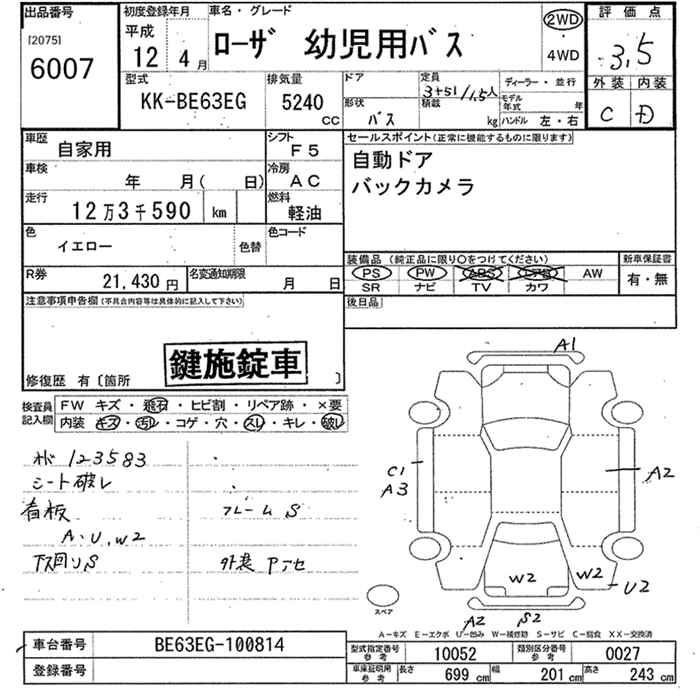 出品番号
[2075]
6007
初度登録年月
平成
12 4月
車名・グレード
ローザ 幼児用バス
2WD
・
4WD
評価点
3,5
外装 内装
C D
型式
KK-BE63EG
排気量
5240
CC
ドア
形状
バス
定員
3+51/1.5人
積載
kg
ディーラー・並行
モデル年式 年
ハンドル 左・右
車歴
自家用
シフト
F5
車検
年 月( 日)
冷房
AC
走行
12万3千590 km
燃料
軽油
色
イエロー
色替
色コード
R券
21,430円
名変通知期限
月 日
セールスポイント(正常に機能するものに限ります)
自動ドア
バックカメラ
装備品(純正品に限り○をつけてください)
PS PW ABS エアB AW
SR ナビ TV カワ
新車保証書
有・無
後日品
注意事項申告欄(不具合内容等は具体的に記入して下さい)
鍵施錠車
修復歴 有〔箇所 〕
検査員
記入欄
FW キズ・飛石・ヒビ割・リペア跡・×要
内装 キズ・汚レ・コゲ・穴・スレ・キレ・破レ
123583
シート破レ
看板
A・U,W2
下回りS
フレームS
外装Pアセ
A1
C1
A3
A2
W2
W2
U2
A2
S2
スペア
A－キズ E－エクボ U－凹み W－補修跡 S－サビ C－腐食 XX－交換済
車台番号
BE63EG-100814
登録番号
型式指定番号
参考
10052
類別区分番号
参考
0027
車庫証明用
参考
長さ
699 cm
幅
201 cm
高さ
243 cm